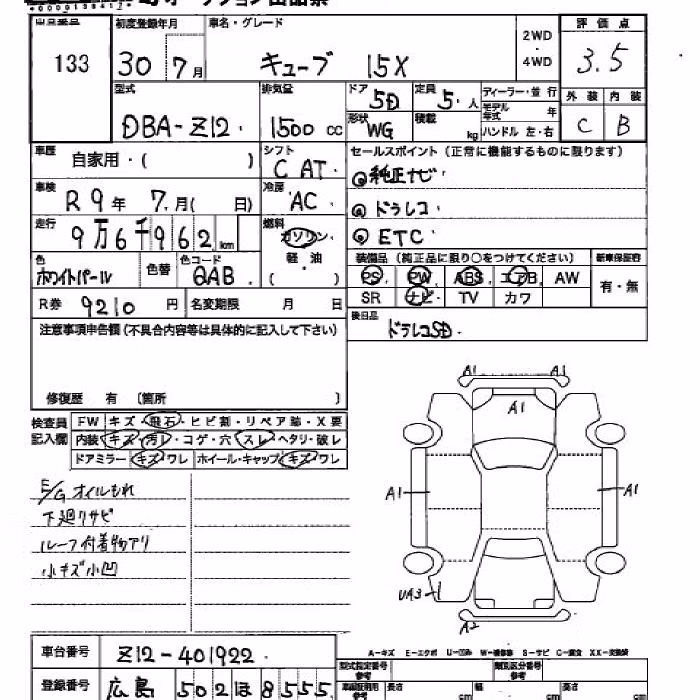 オークション出品票
出品番号 133
初度登録年月 30年 7月
車名・グレード キューブ 15X
2WD・4WD
評価点 3.5
外装 C 内装 B
型式 DBA-Z12
排気量 1500cc
ドア 5D
定員 5人
形状 WG
積載 kg
ディーラー・並行
モデル年式 年
ハンドル 左・右
車歴 自家用・( )
シフト C AT
車検 R9年 7月( 日)
冷房 AC
走行 9万6千962km
燃料 ガソリン・軽油・( )
色 ホワイトパール
色替
色コード QAB
R券 9210円
名変期限 月 日
セールスポイント(正常に機能するものに限ります)
◎純正ナビ
◎ドラレコ
◎ETC
装備品(純正品に限り○をつけてください)
PS PW ABS エアB AW
SR ナビ TV カワ
新車保証書 有・無
後日品 ドラレコSD
注意事項申告欄(不具合内容等は具体的に記入して下さい)
修復歴 有 〔箇所 〕
検査員記入欄
FW キズ・飛石・ヒビ割・リペア跡・X要
内装 キズ・汚レ・コゲ・穴・スレ・ヘタリ・破レ
ドアミラー キズ・ワレ ホイール・キャップ キズ・ワレ
E/Gオイルもれ
下廻りサビ
ルーフ付着物アリ
小キズ小凹
A1 A1
A1
A1 A1
UA3
A2
A-キズ E-エクボ U-凹み W-補修跡 S-サビ C-腐食 XX-交換済
車台番号 Z12-401922
登録番号 広島 502 ほ 8555
型式指定番号 参考
類別区分番号 参考
車検証明用 参考
長さ cm 幅 cm 高さ cm